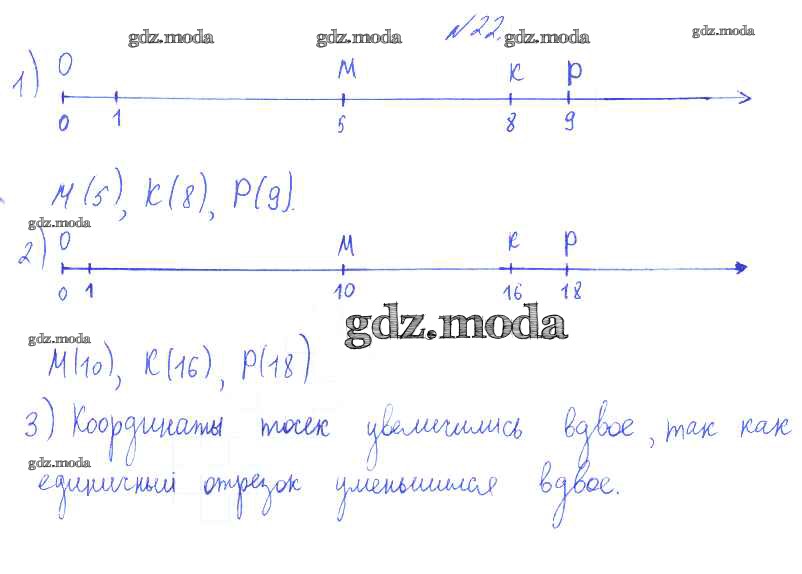 gdz.moda gdz.moda №22. gdz.moda gdz.moda
1) О М К Р
0 1 5 8 9
М(5), К(8), Р(9).
gdz.moda
2) О М К Р
0 1 10 16 18
gdz.moda
gdz.moda
М(10), К(16), Р(18)
3) Координаты точек увеличились вдвое, так как
gdz.moda
единичный отрезок уменьшился вдвое.